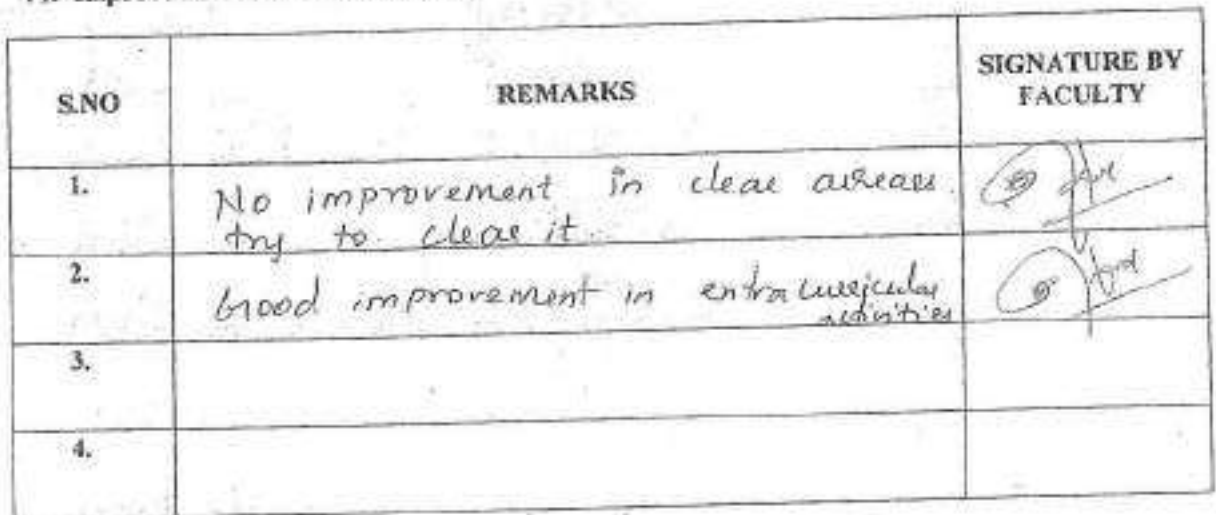 S.NO REMARKS SIGNATURE BY
FACULTY
1. No improvement in clear arrears.
try to clear it.
2. Good improvement in extra curricular
activities
3.
4.